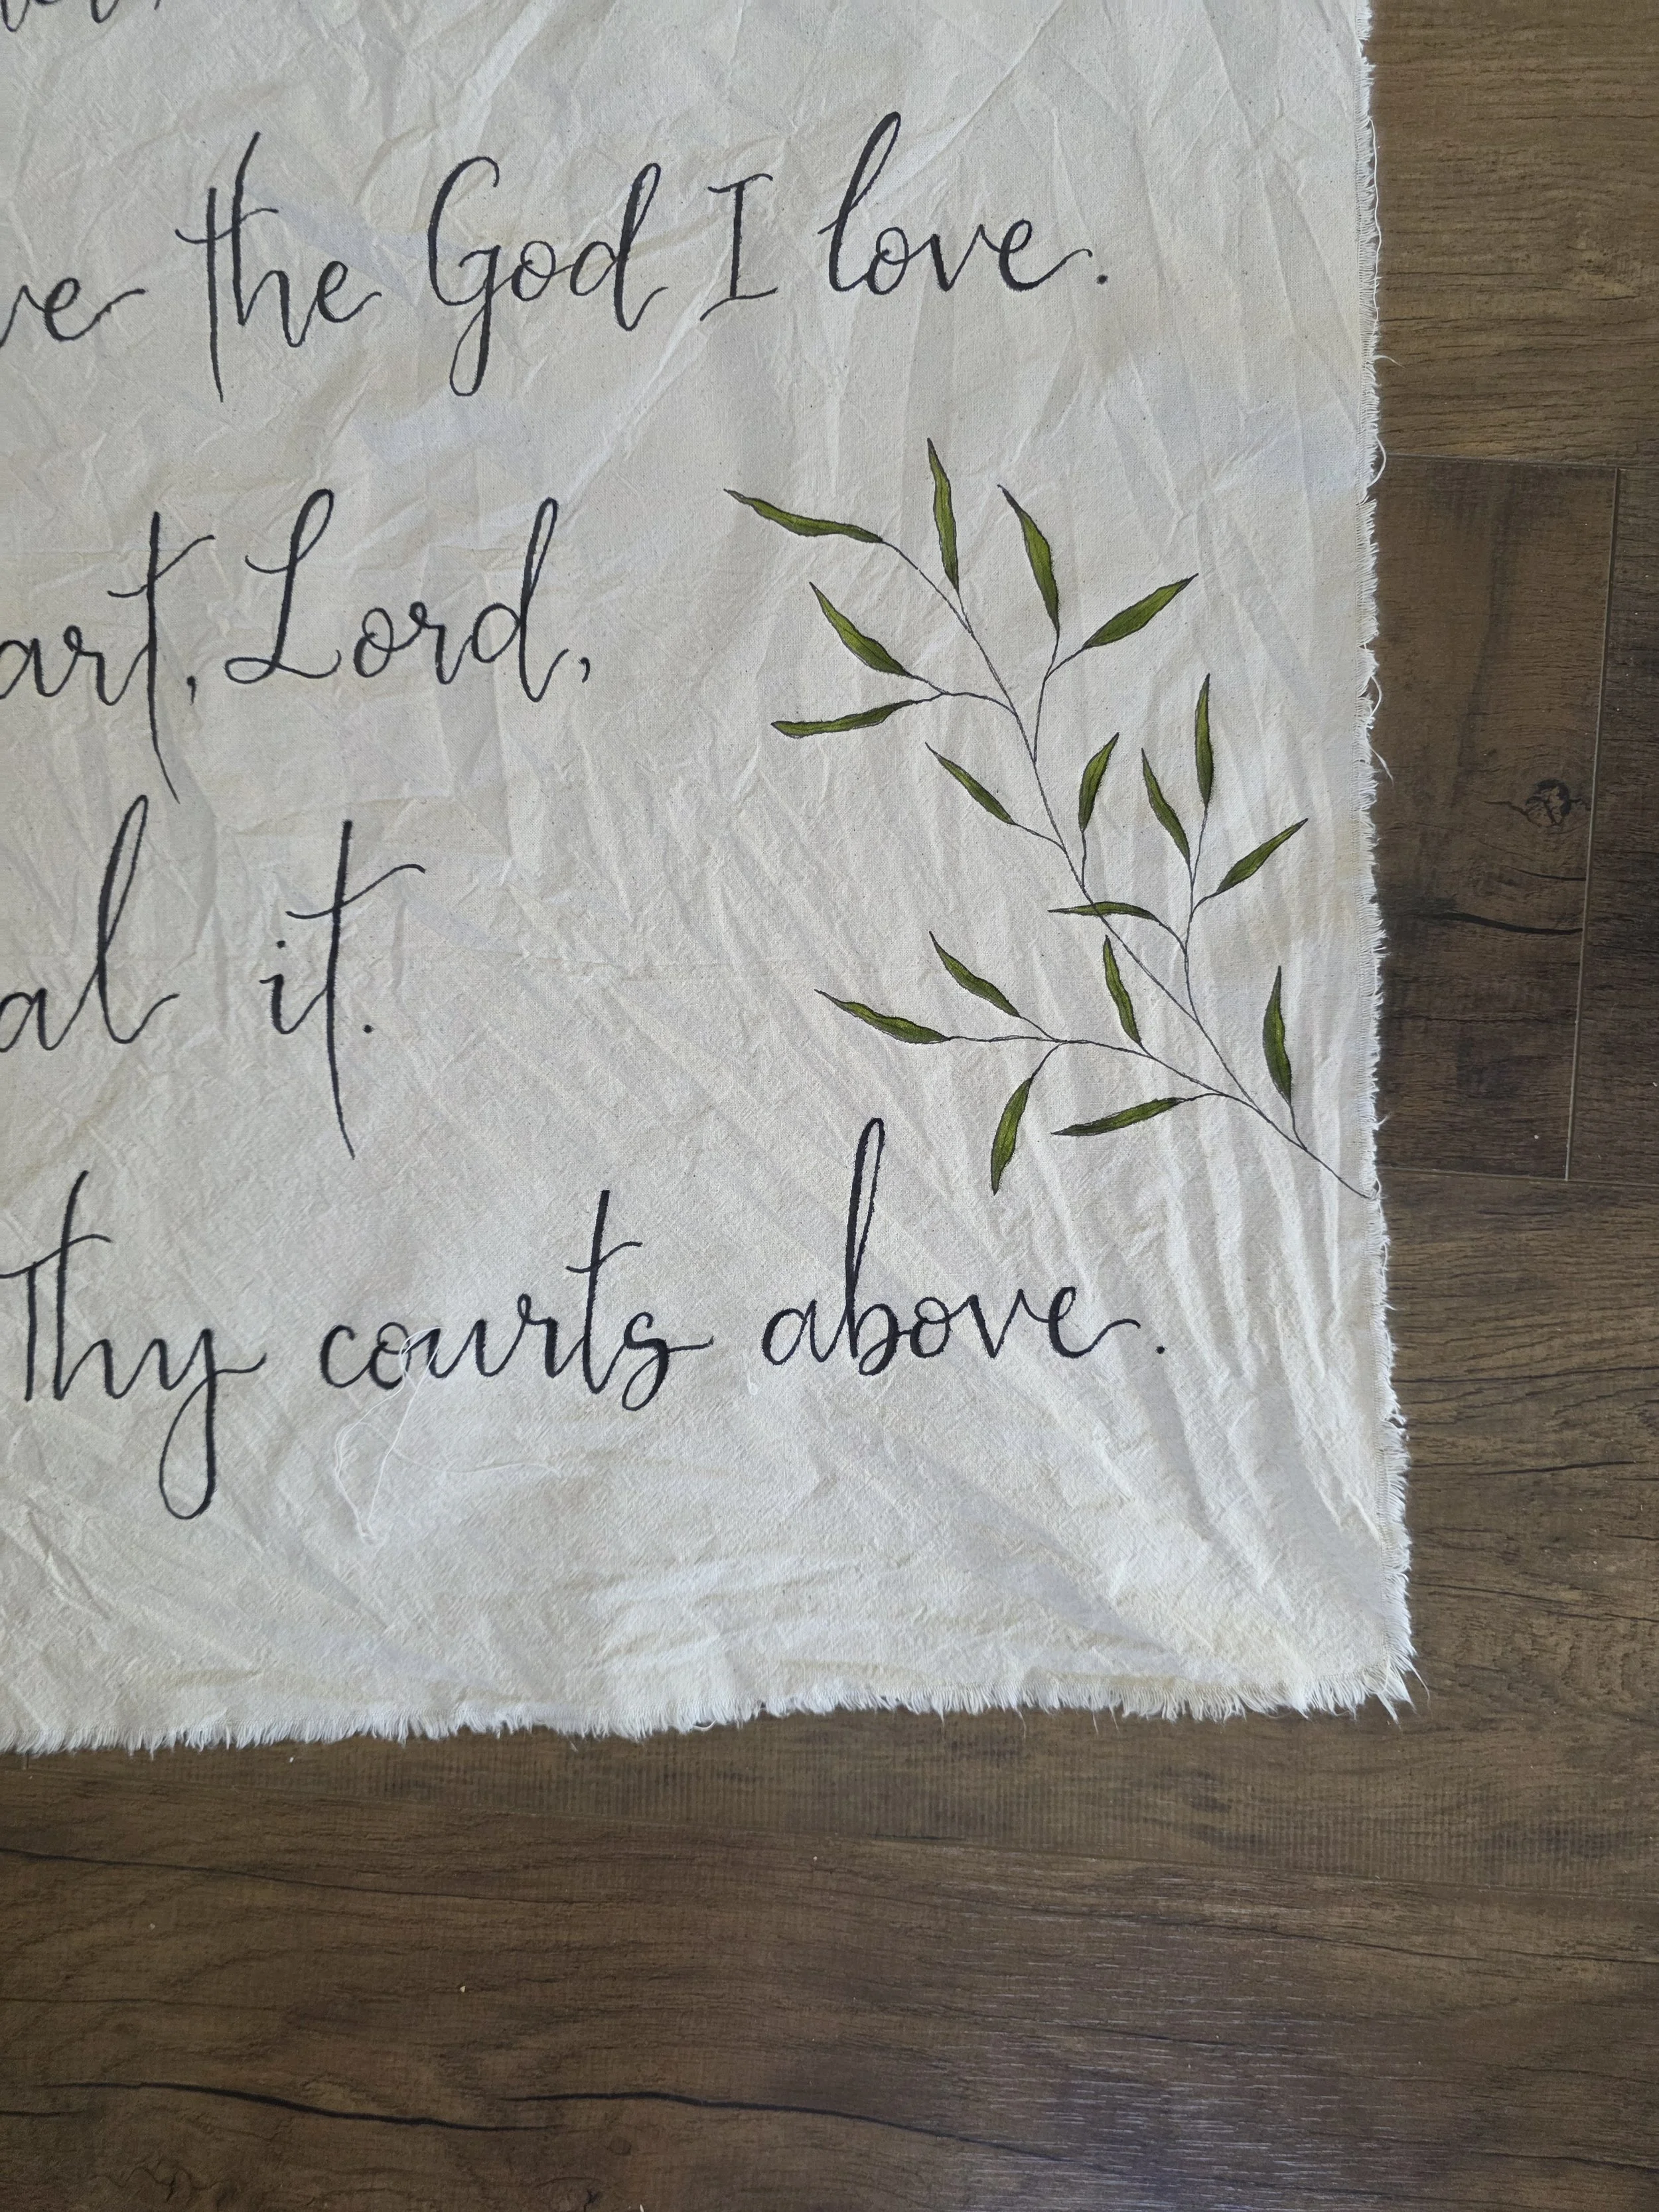 the God I love.
Lord,
it.
Thy courts above.